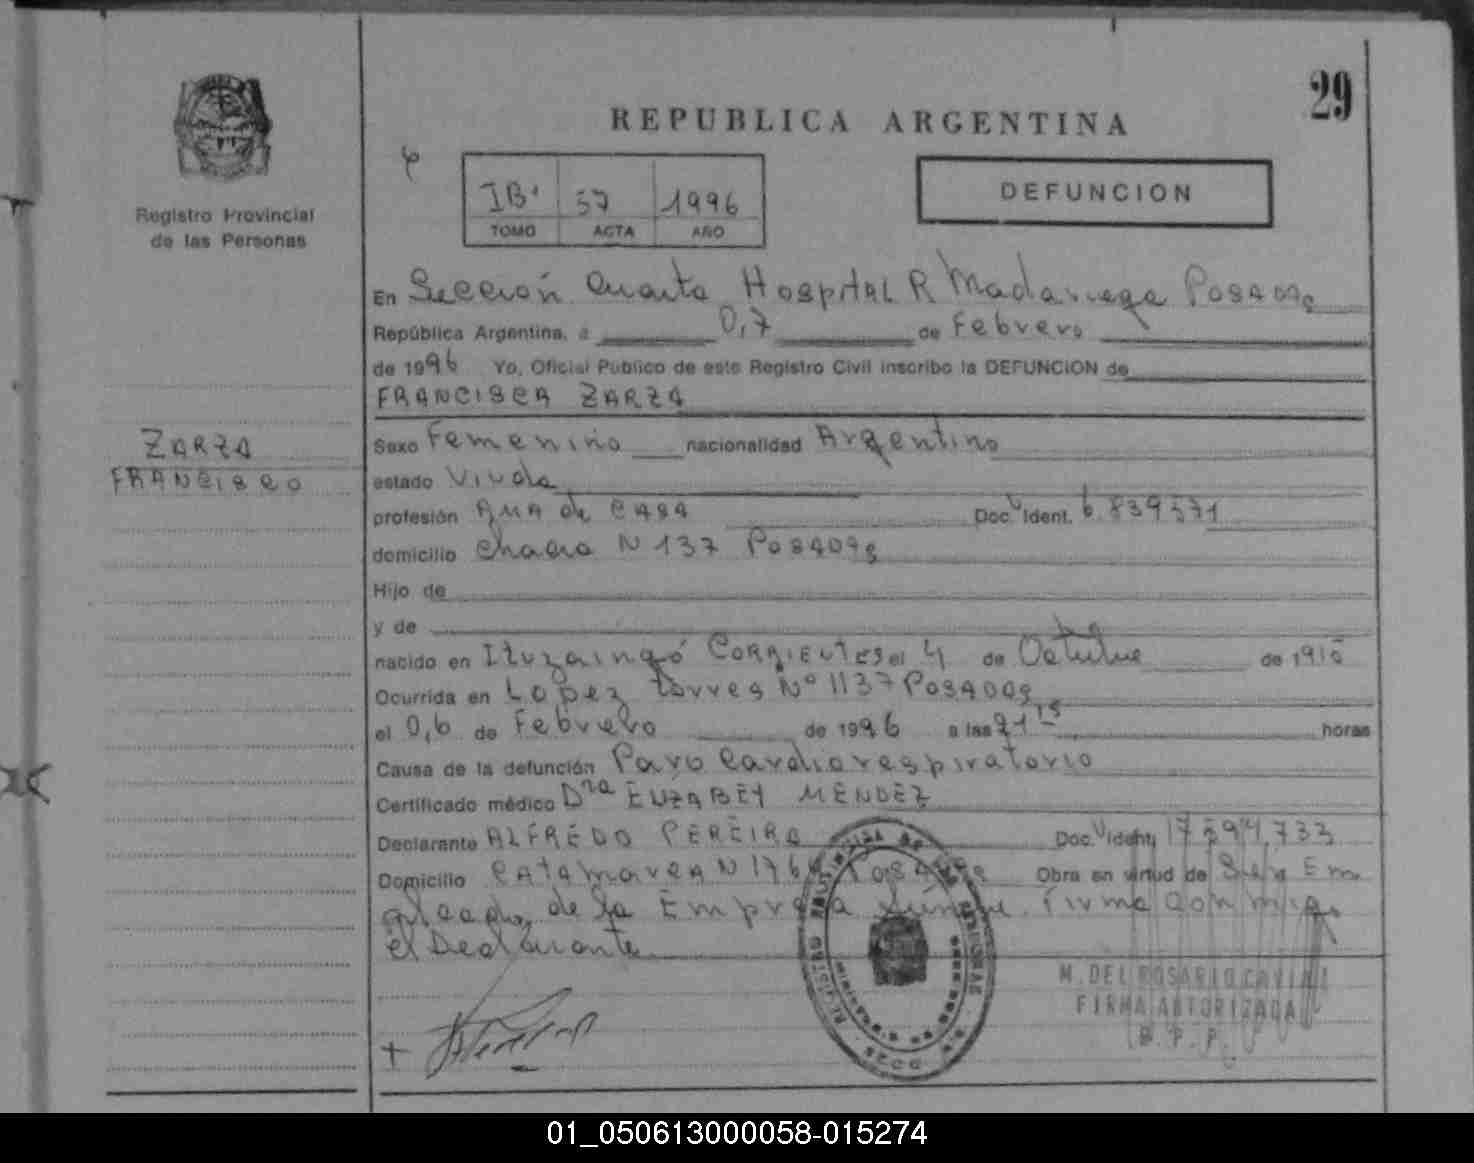 29
REPUBLICA ARGENTINA
IBº 57 1996
TOMO ACTA AÑO
DEFUNCION
Registro Provincial
de las Personas
En Sección Cuarta Hospital R Madariaga Posadas
República Argentina, a 0,7 de Febrero
de 1996 Yo, Oficial Público de este Registro Civil inscribo la DEFUNCION de
FRANCISCA ZARZA
ZARZA
FRANCISCA
Sexo Femenino nacionalidad Argentina
estado Viuda
profesión AMA de CASA Doc. Ident. 6.839571
domicilio Chacra N 137 POSADAS
Hijo de
y de
nacido en Ituzaingó CORRIENTES el 4 de Octubre de 1910
Ocurrida en Lopez torres Nº 1137 POSADAS
el 0,6 de Febrero de 1996 a las 21 15 horas
Causa de la defunción Paro Cardiorespiratorio
Certificado médico Dra ELIZABET MENDEZ
Declarante ALFREDO PEREIRA Doc. Ident. 17.594.733
Domicilio CATAMARCA N 176 POSADAS Obra en virtud de Ser Em
pleado de la Empresa Firma conmigo
el Declarante
M. DEL ROSARIO
FIRMA AUTORIZADA
R. P. P.
01_050613000058-015274